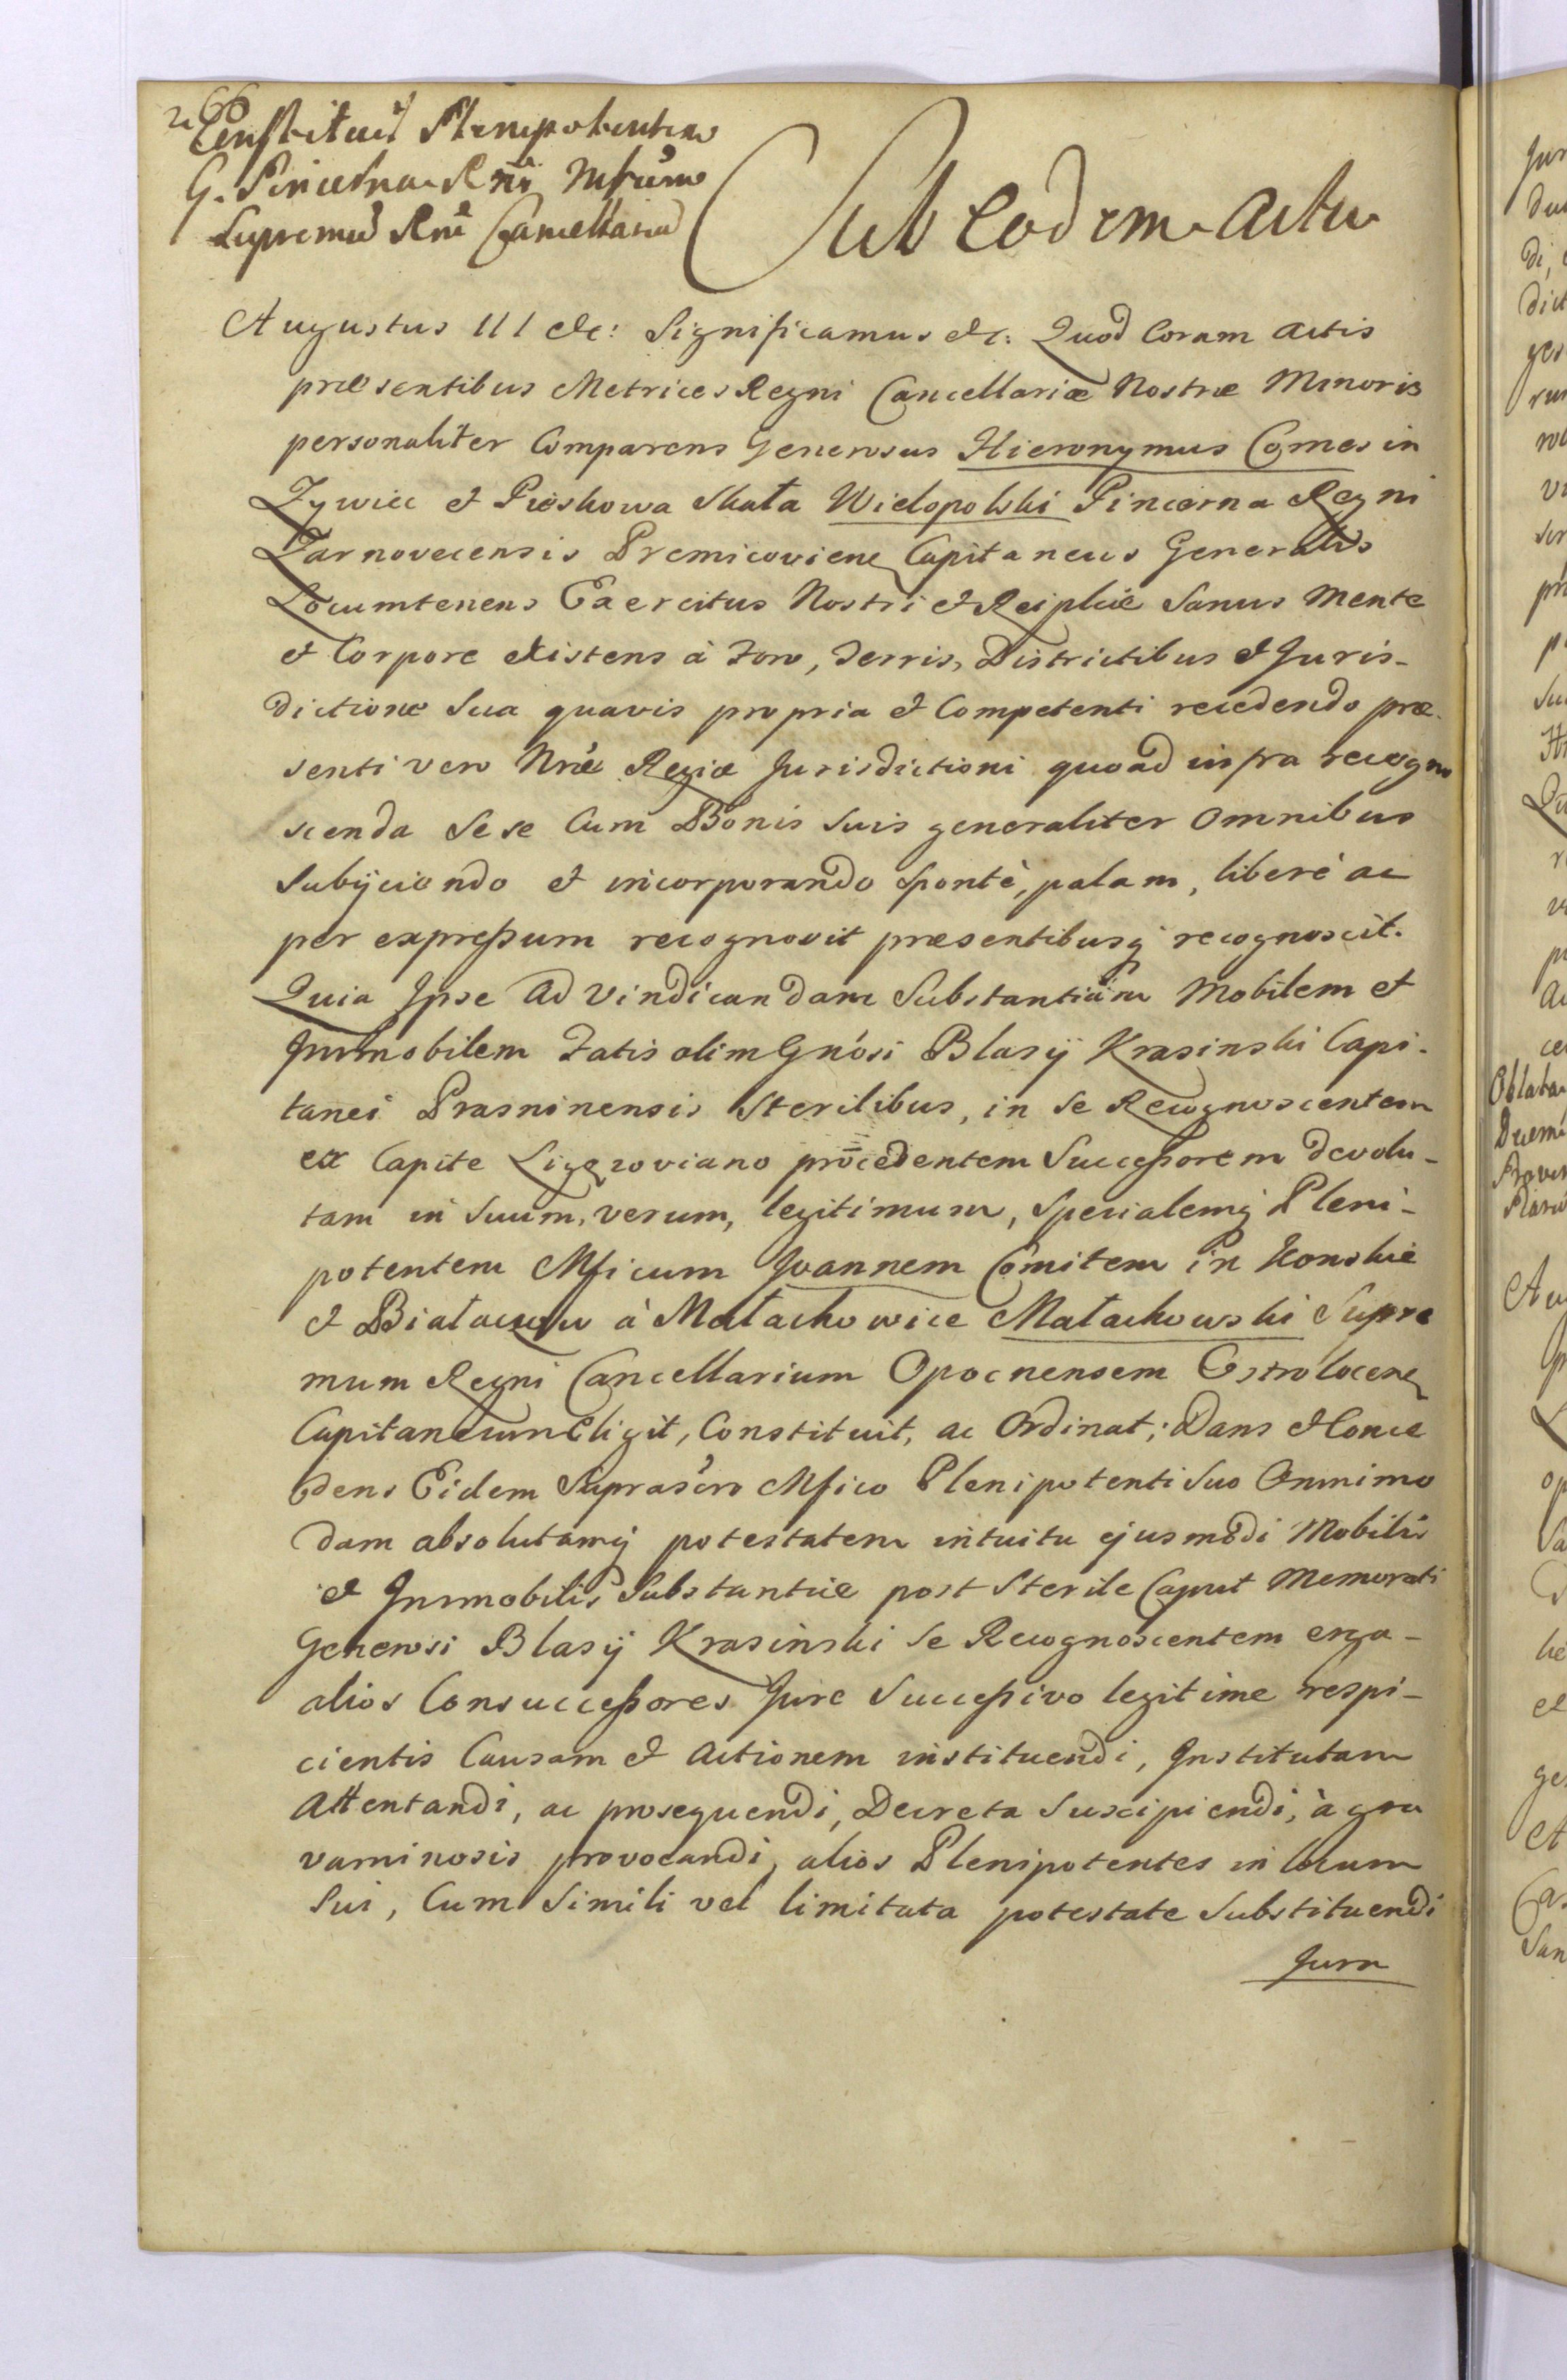 266
Constituit Plenipotentem
G. Pincerna Rni Mfcum
Supremu Rni Cancellariu
Sub eodem actu
Augustus III &c: Significamus &c: Quod Coram actis
præsentibus Metrices Regni Cancellariæ Nostræ Minoris
personaliter Comparens Generosus Hieronymus Comes in
Zywiec et Pieskowa Skała Wielopolski Pincerna Regni
Zarnovecensis Premicoviene Capitaneus Generalis
Locumtenens Exercitus Nostri et Reiplicæ Sanus Mente
et Corpore existens à Foro, Terris, Districtibus et Juris-
dictione Sua quavis propria et Competenti recedendo præ-
senti vero Nræ Regiæ Jurisdictioni quoad infra recogno
scenda Sese Cum Bonis Suis generaliter Omnibus
Subijciendo et incorporando sponté, palam, liberé ac
per expressum recognovit præsentibusq recognoscit.
Quia Ipse Ad Vindicandam Substantiam Mobilem et
Immobilem Fatis olim Gnosi Blasij Krasinski Capi-
tanei Prasninensis Sterilibus, in Se Recognoscentem
ex Capite Ligezoviano procedentem Successorem devolu-
tam in Suum, verum, legitimum, Specialemq Pleni-
potentem Mficum Joannem Comitem in Konskie
et Białaczow à Małachowice Małachowski Supre
mum Regni Cancellarium Opocnensem Ostrolocene
Capitaneum Eligit, Constituit, ac Ordinat; Dans et Conce
dens Eidem Suprascro Mfico Plenipotenti Suo Omnimo
dam absolutamq potestatem intuitu ejusmodi Mobilis
et Immobilis Substantiæ post Sterile Caput Memorati
Generosi Blasij Krasinski Se Recognoscentem erga-
alios Consuccessores Jure Successivo legitime respi-
cientis Causam et Actionem instituendi, Institutam
Attentandi, ac prosequendi, Decreta Suscipiendi, à gra
vaminosis provocandi, alios Plenipotentes in locum
Sui, Cum Simili vel limitata potestate Substituendi
Jura